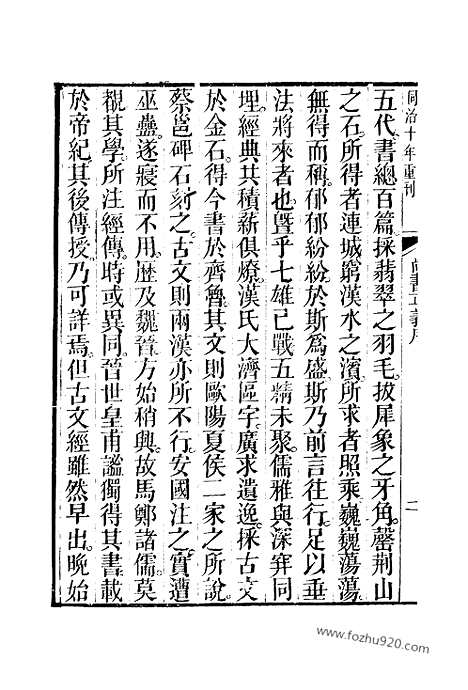 同治十年重刊
尚書正義序
二
五代書總百篇採翡翠之羽毛拔犀象之牙角罄荆山
之石所得者連城窮漢水之濱所求者照乘巍巍蕩蕩
無得而稱郁郁紛紛於斯爲盛斯乃前言往行足以垂
法將來者也曁乎七雄已戰五精未聚儒雅與深穽同
埋經典共積薪俱燎漢氏大濟區宇廣求遺逸採古文
於金石得今書於齊魯其文則歐陽夏侯二家之所說
蔡邕碑石刻之古文則兩漢亦所不行安國注之實遭
巫蠱遂寢而不用歷及魏晉方始稍興故馬鄭諸儒莫
覩其學所注經傳時或異同晉世皇甫謐獨得其書載
於帝紀其後傳授乃可詳焉但古文經雖然早出晚始
www.fozhu920.com